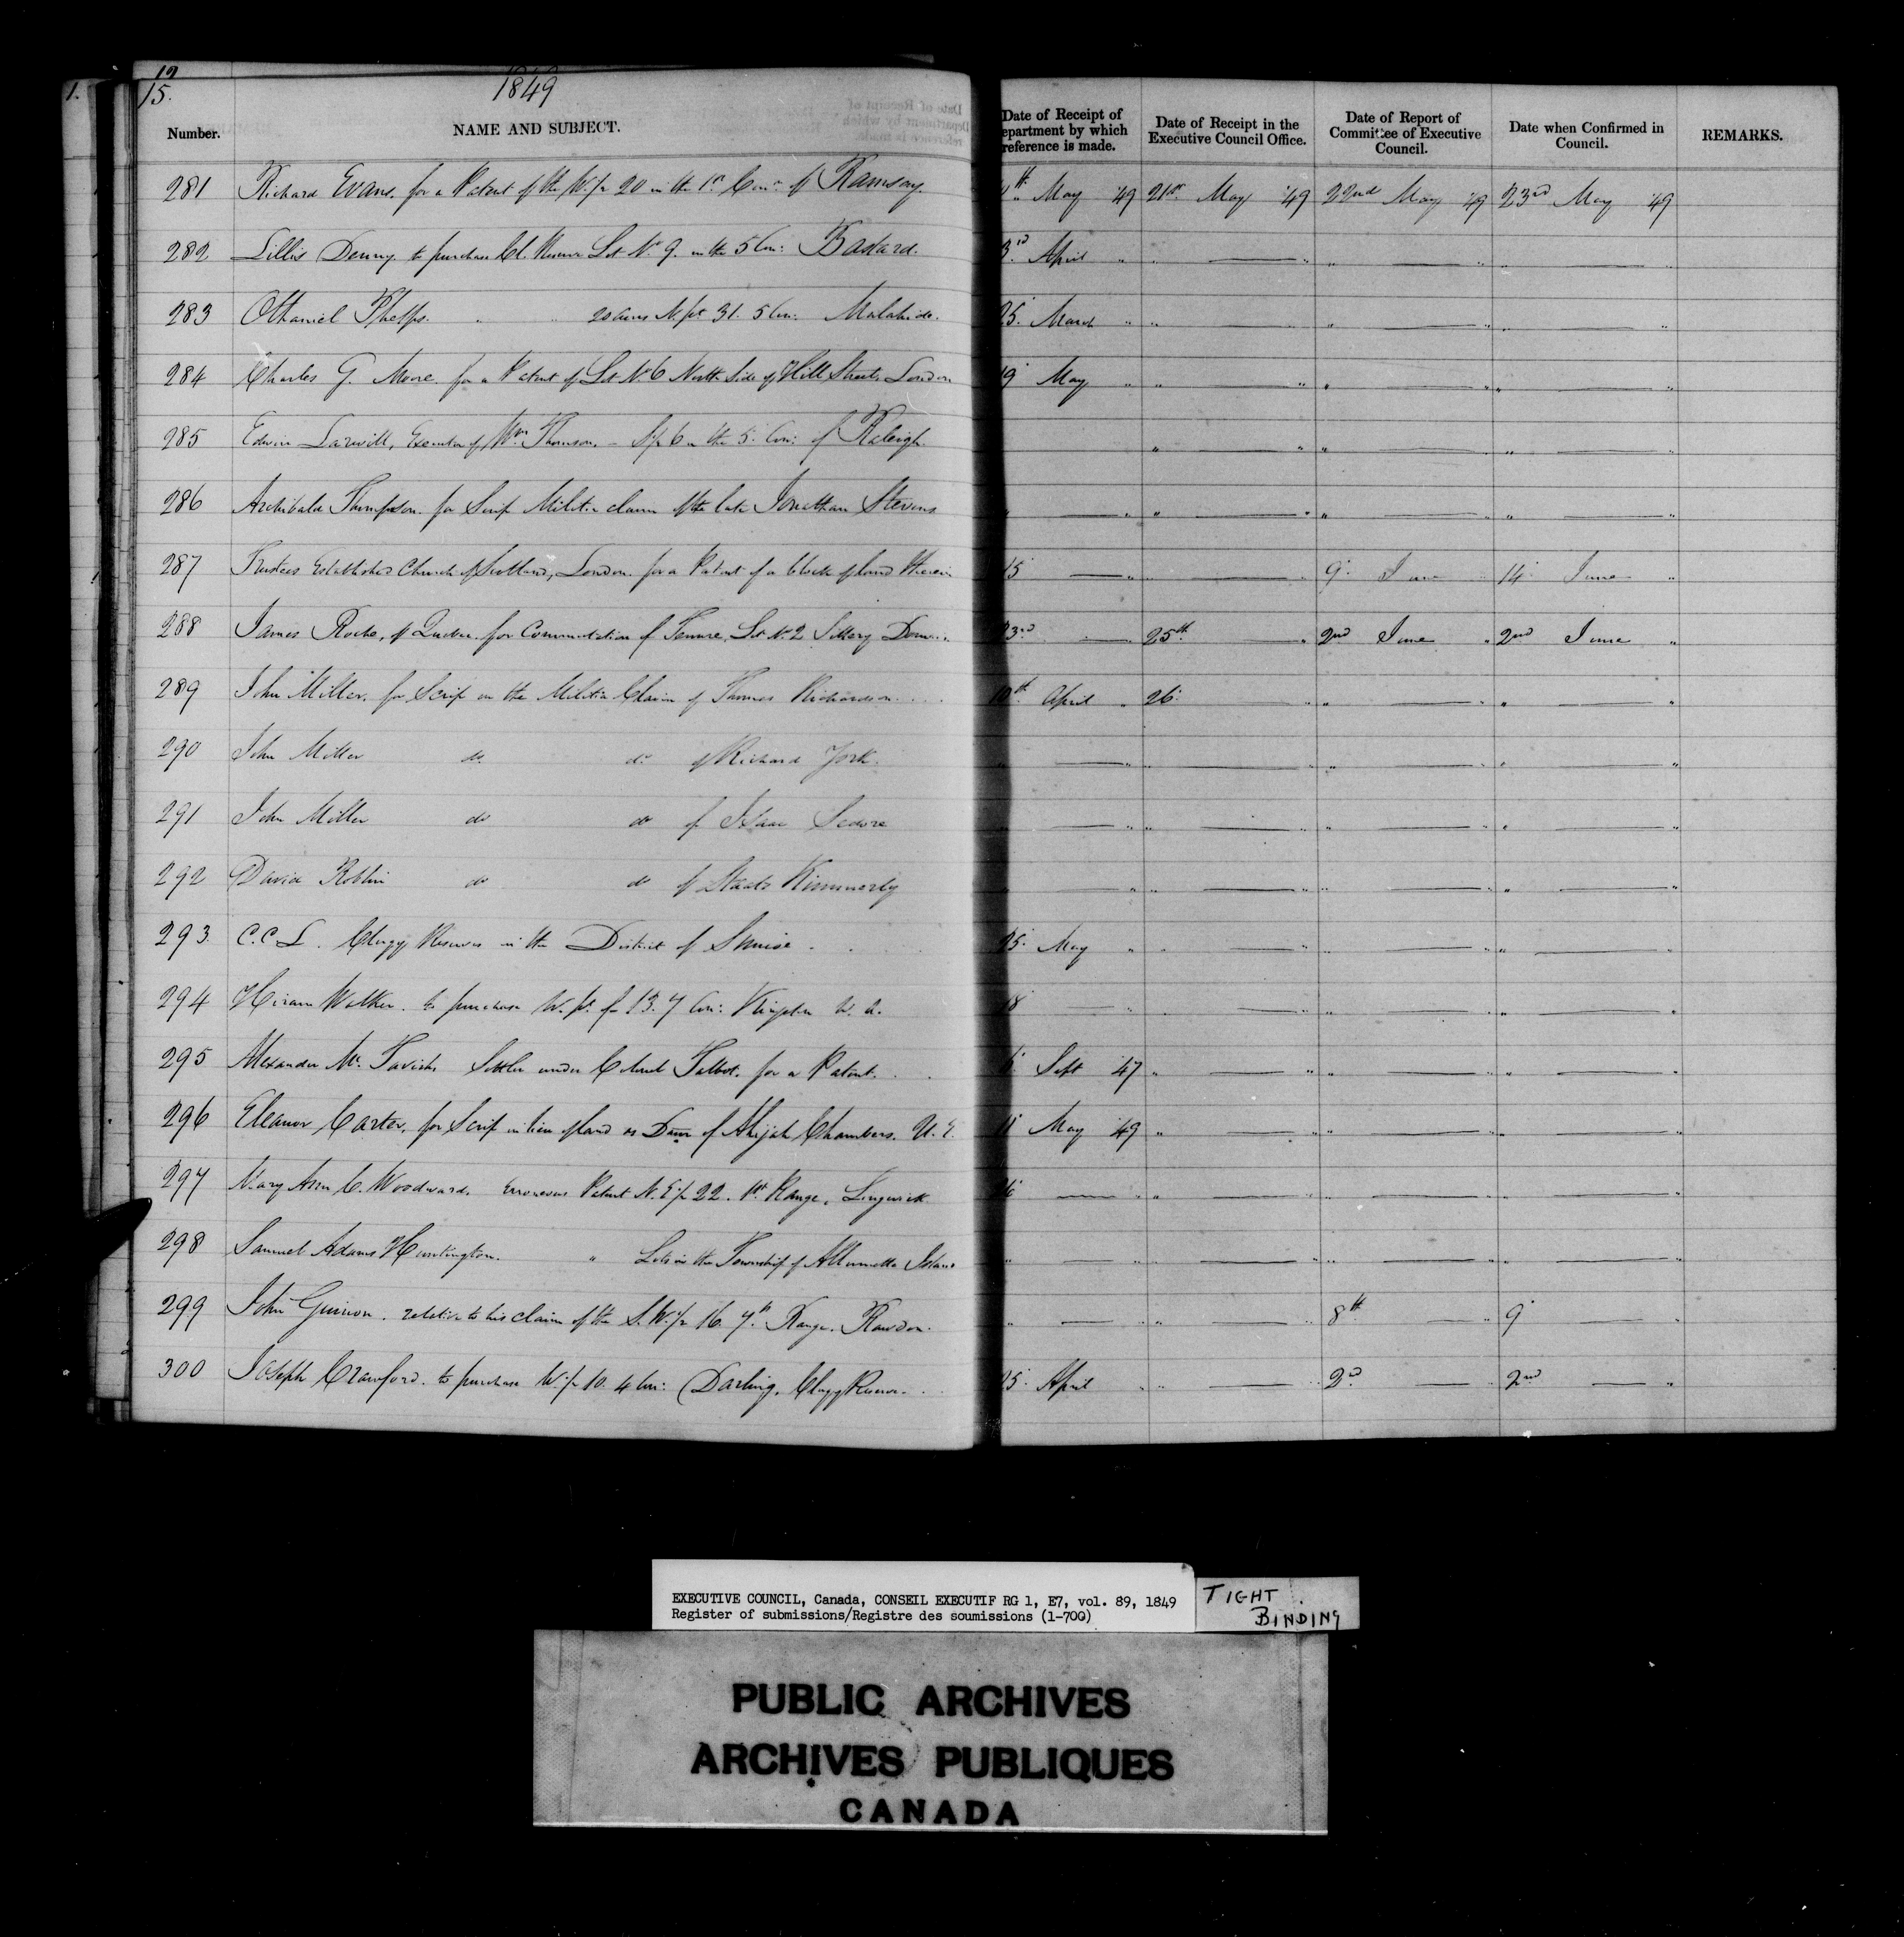 12
15.
1.
1849
Number. NAME AND SUBJECT. Date of Receipt of Department by which reference is made. Date of Receipt in the Executive Council Office. Date of Report of Committee of Executive Council. Date when Confirmed in Council. REMARKS.
281 Richard Evans, for a Patent of the W. ½ 20 in the 1st Con: of Ramsay. th May '49 21st May '49 22nd May '49 23rd May '49
282 Lillis Denny to purchase Cl. Reserve Lot No. 9. in the 5 Con: Bastard. 3rd April " " — " " — " " — "
283 Othaniel Phelps. " " 20 acres N. pt 31. 5 Con: Malahide. 25. March " " — " " — " " — "
284 Charles G. Moore. for a Patent of Lot No 6 North Side of Hill Street, London 19 May " " — " " — " " — "
285 Edwin Larwill, Executor of Wm Thomson. - ½ 6 in the 5. Con: of Raleigh " — " " — " " — "
286 Archibald Thompson. for Scrip Militia claim of the late Jonathan Stevens " — " " — " " — " " — "
287 Trustees Established Church of Scotland, London. for a Patent of a block of land therein 15 — " " — " 9. June " 14. June "
288 James Roche, of Quebec. for Commutation of Tenure, Lot No 2 Sillery 23rd — " 25th — " 2nd June " 2nd June "
289 John Miller, for Scrip on the Militia Claim of Thomas Richardson. 10th April " 26. — " " — " " — "
290 John Miller do. do. of Richard York. " — " " — " " — " " — "
291 John Miller do do of Isaac Sedore " — " " — " " — " " — "
292 David Roblin do do of Staats Kimmerly " — " " — " " — " " — "
293. C.C.L. Clergy Reserves in the District of Simcoe. 25. May " " — " " — " " — "
294 Hiram Walker. to purchase W. pt of 13. 7 Con: Kingston 18 — " " — " " — " " — "
295 Alexander Mc. Tavish Settler under Colonel Talbot. for a Patent. 6 Sept '47 " — " " — " " — "
296 Eleanor Carter, for Scrip in lieu of land as Daur of Abijah Chambers. U.E. 11 May '49 " — " " — " " — "
297 Mary Ann C. Woodward. Erroneous Patent N.E. ½ 22. 1st Range, Lingwick. 26 — " " — " " — " " — "
298 Samuel Adams Huntington. " Lots in the Township of Allumette Island " — " " — " " — " " — "
299 John . relative to his claim of the S.W. ½ 16. 7th Range. Rawdon. " — " " — " 8th — " 9 — "
300 Joseph Crawford. to purchase W. ½ 10. 4 Con: Darling, Clergy Reserve. 25. April " " — " 2d — " 2nd — "
EXECUTIVE COUNCIL, Canada, CONSEIL EXECUTIF RG 1, E7, vol. 89, 1849
Register of submissions/Registre des soumissions (1-700)
TIGHT
BINDING
PUBLIC ARCHIVES
ARCHIVES PUBLIQUES
CANADA